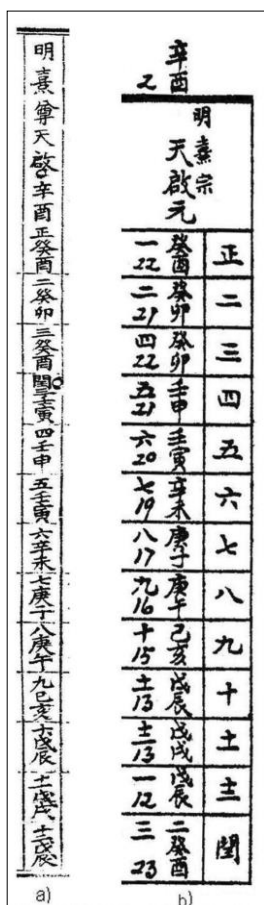 明熹尊天啟辛酉正癸酉二癸卯三癸酉閏壬寅四壬申五壬寅六辛未七庚子八庚午九己亥十戊辰十一戊戌十二戊辰
a)
辛酉
2
明熹宗
天啟元
正 癸酉 一22
二 癸卯 二21
三 癸卯 四22
四 壬申 五21
五 壬寅 六20
六 辛未 七19
七 庚子 八17
八 庚午 九16
九 己亥 十15
十 戊辰 十一13
十一 戊戌 十二13
十二 戊辰 一12
閏 二癸酉 三23
b)